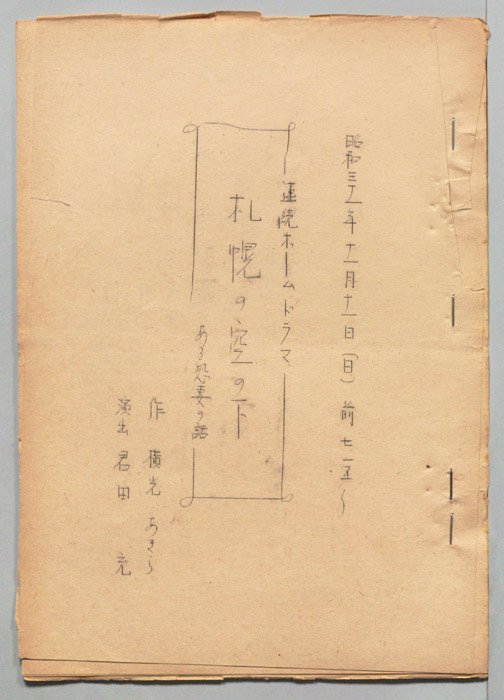 昭和三一年十一月十一日（日） 前七一五〜
連続ホームドラマ
札幌の空の下
ある恐妻の話
作 横光 あきら
演出 君田 充